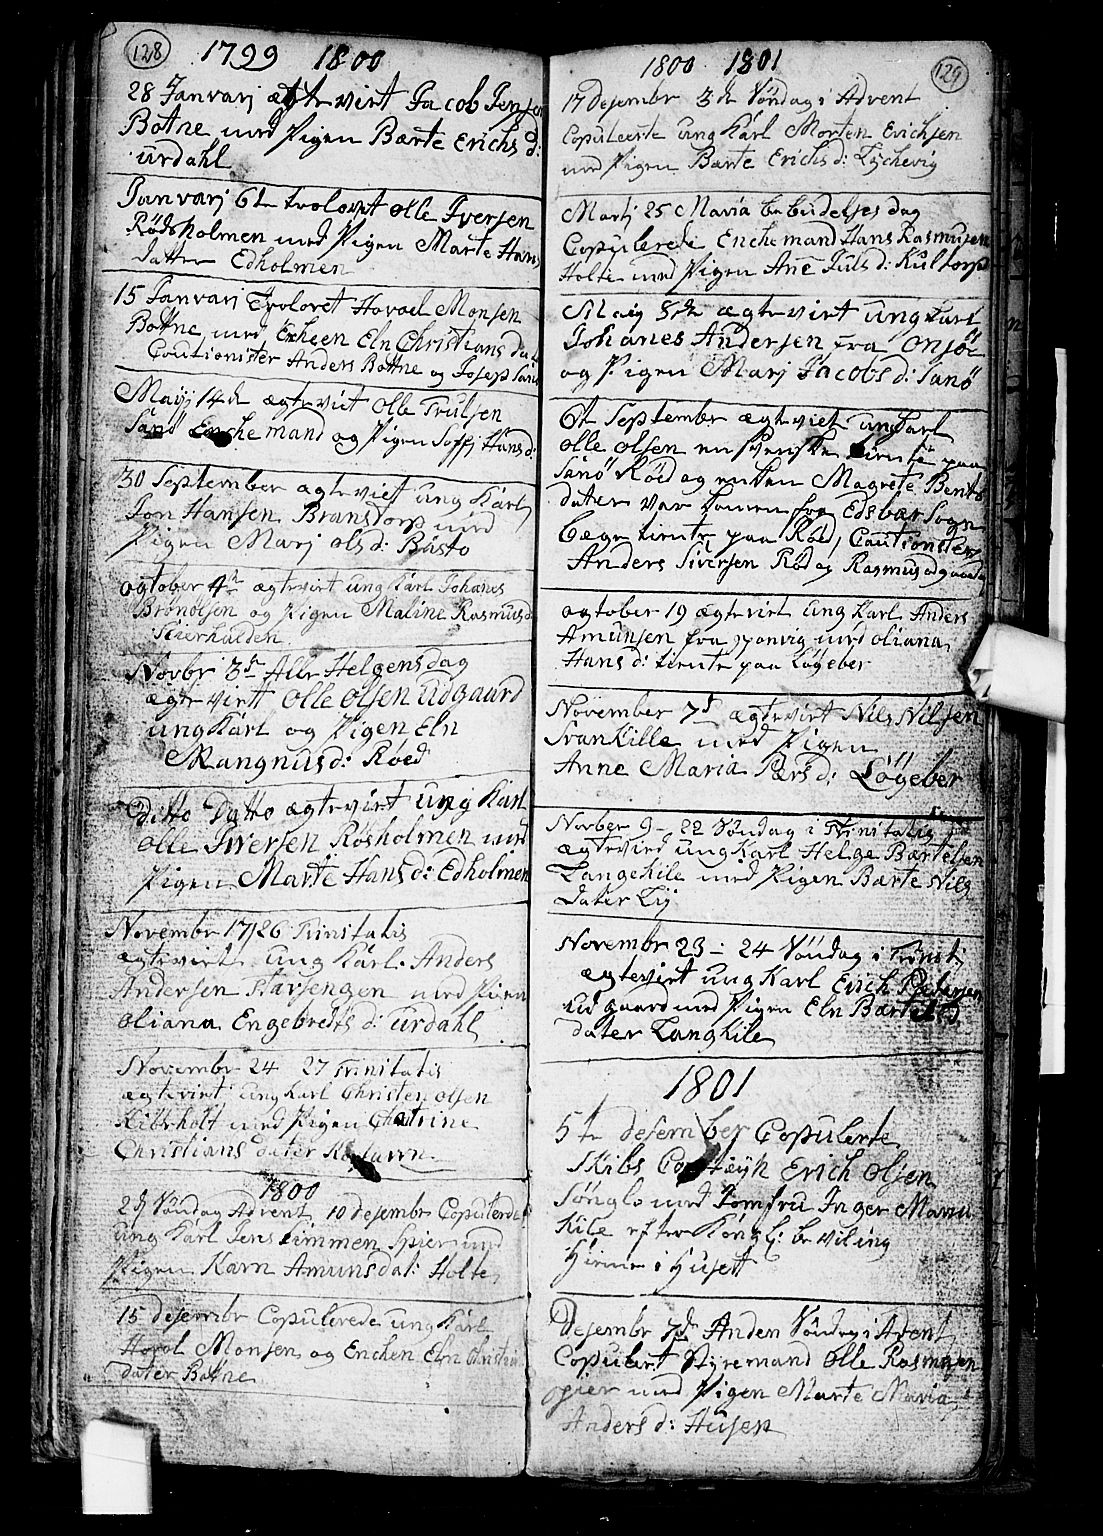 128
1799 1800
28 Janvarj ægtevirt Jacob Jensen
Botne med Pigen Bærte Erichs d:
urdahl
Janvarj 6te trolovet Olle Iversen
Rødsholmen med Pigen Marte Hans
datter Edholmen
15 Janvarj Troloret Hovoel Monsen
Bottne med Encheen Eln Christians dat
Coutionister Anders Bottne og Josep Sanø
Maij 14de ægteviet Olle Trulsen
Sanø Enchemand og Pigen Soffj Hans d:
30 September ægteviet ung Karl
Jon Hansen Bransdorp med
Pigen Marj ols d: Basto
ogtober 4de ægtevirt ung Karl Johanes
Brönolsen og Pigen Maline Rasmus d
Seierhalden
Novbr 3de Alle Helgensdag
ægtevirt Olle Olsen Udgaard
ung Karl og Pigen Eln
Mangnus d: Røed
Ditto Datto ægtevirt ung Karl
Olle Iversen Rosholmen med
Pigen Marte Hans d: Edholmen
Novembr 17/26 Trinitatis
ægtevirt ung Karl Anders
Andersen med Pigen
Oliana Engebrets d: urdahl
Novembr 24 27 Trinitatis
ægtevirt ung Karl Christen Olsen
Kibsholt med Pigen Chatrine
Christians dater
1800
2de Söndag Advent 10 desembr Copulerde
ung Karl Jens Simmen Spier med
Pigen Karn Amunsdat: Holte
15 desembr Copulerede ung Karl
Hovol Monsen og Enchen Eln Christin
dater Bottne
1800 1801
129
17 Desembr 3de Söndag i Advent
Copuleerte ung Karl Morten Erichsen
med Pigen Bærte Erichs d: Lychevig
Martj 25 Maria bebudelses dag
Copulerede Enchemand Hans Rasmusen
Holte med Pigen Ane Juls d: Kultorp
Maij 8de ægtevirt ung Karl
Johanes Andersen fra Onsöe
og Pigen Marj Jacobs d: Sanö
6te September ægteviet ung Karl
Olle Olsen en Svenske tiente paa
Sanö Röed og Magrete Bents
dater var komen fra Edsbær Sogn
begge tiente paa Röd, Coutionster
Anders Siversen Röd og Rasmus odgaard
ogtober 19 ægtevirt ung Karl Anders
Amunsen fra Spanvig med Oliana
Hans d: tiente paa Løgeber
November 7de ægtevirt Nils Nilsen
Srankille med Pigen
Anne Maria Pærs d: Løgeber
Norber 9 - 22 Söndag i Trinitatis
ægtevied ung Karl Helge Bærtelsen
Langekile med Pigen Bærte Nils
dater Lij
Novembr 23 - 24 Söndag i Trinit
ægtevirt ung Karl Erich Petersen
Udgaard med Pigen Eln Bærtels
dater Langkile
1801
5te desember Copulerte
Skibs Erich Olsen
Sönglo med Jomfru Inger Maria
Kile efter Köngl: beviling
hieme i Huset
Desembr 7de Anden Söndag i Advent
Copulert Styremand Olle Rasmusen
Spier med Pigen Marte Maria
Anders d: Husen